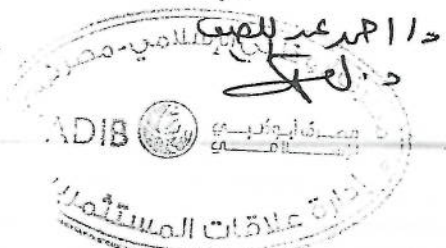 د/ احمد عبد اللطيف
الإسلامي-مصر
ADIB مصرف أبوظبي
الإسلامي
إدارة علاقات المستثمرين